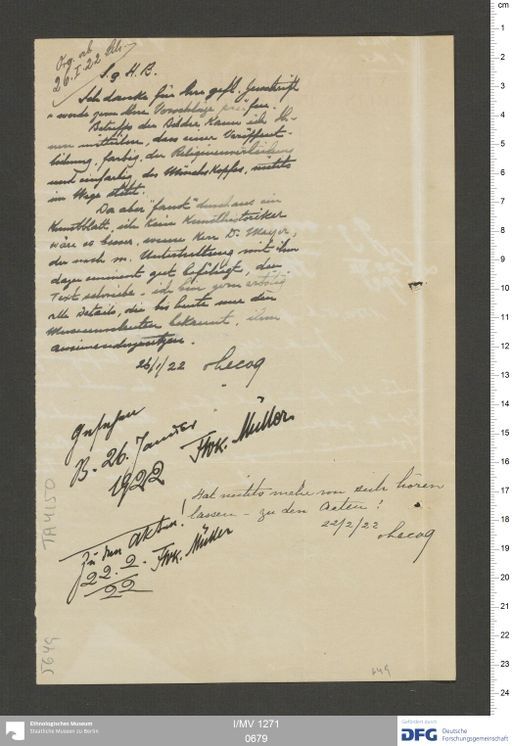 Org. ab
26.I.22
S. g. H. B.
Ich danke für Ihre gefl. Zuschrift
werde gern Ihre Vorschläge prüfen.
Betreffs der Bilder kann ich Ih-
nen mitteilen, dass einer Veröffent-
lichung, farbig, der
und einfarbig des Mönchskopfes, nichts
im Wege steht.
Da aber "faust" durchaus ein
Kunstblatt, ich kein Kunsthistoriker
wäre es besser, wenn Herr Dr. Meyer,
der nach m. Unterhaltung mit ihm
dazu eminent gut befähigt, den
Text schriebe. ich bin gern erbötig
alle Details, die bis heute nur den
bekannt, ihm
auseinanderzusetzen.
26/1/22 Lecoq
Gesehen
B. 26. Januar
1922 Müller
Hat nichts mehr von sich hören
lassen - zu den Acten!
22/2/22
Lecoq
Zu den Akten!
22. 2.
22
Müller
TA 4150
5649
649
cm
1
2
3
4
5
6
7
8
9
10
11
12
13
14
15
16
17
18
19
20
21
22
23
24
Ethnologisches Museum
Staatliche Museen zu Berlin
I/MV 1271
0679
Gefördert durch
DFG Deutsche
Forschungsgemeinschaft